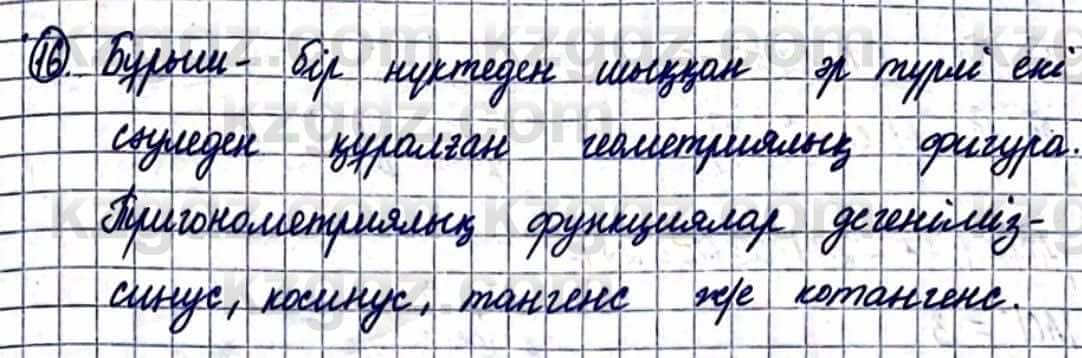 16. Бұрыш - бір нүктеден шыққан әр түрлі екі
сәуледен құралған геометриялық фигура.
Тригонометриялық функциялар дегеніміз -
синус, косинус, тангенс ж/е котангенс.